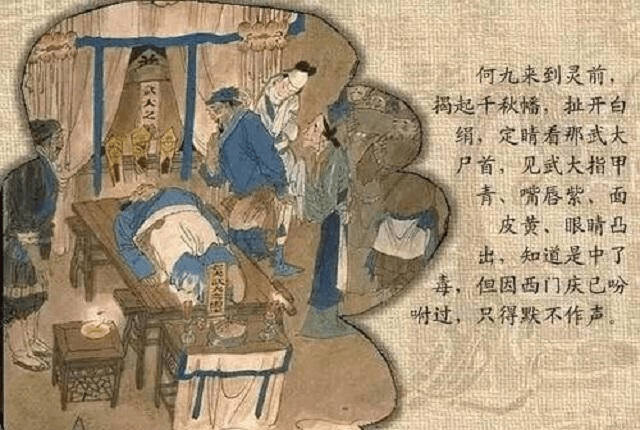 何九来到灵前，
揭起千秋幡，扯开白
绢，定睛看那武大
尸首，见武大指甲
青、嘴唇紫，面
皮黄、眼睛凸
出，知道是中了
毒，但因西门庆已吩
咐过，只得默不作声。
武大之